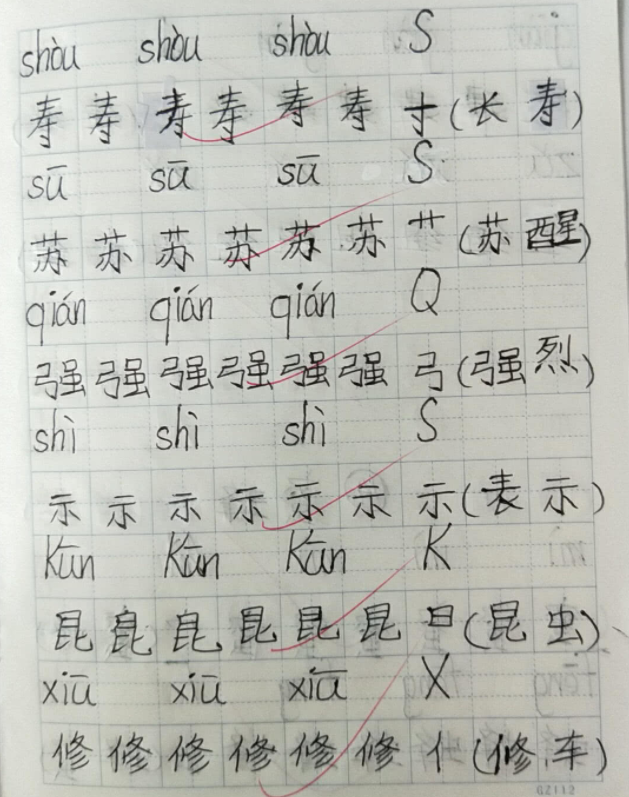 shòu shòu shòu S
寿 寿 寿 寿 寿 寿 寸 (长 寿)
sū sū sū S
苏 苏 苏 苏 苏 苏 艹 (苏 醒)
qián qián qián Q
强 强 强 强 强 强 弓 (强 烈)
shì shì shì S
示 示 示 示 示 示 示 (表 示)
Kūn Kūn Kūn K
昆 昆 昆 昆 昆 昆 日 (昆 虫)
xiū xiū xiū X
修 修 修 修 修 修 亻 (修 车)
GZ112